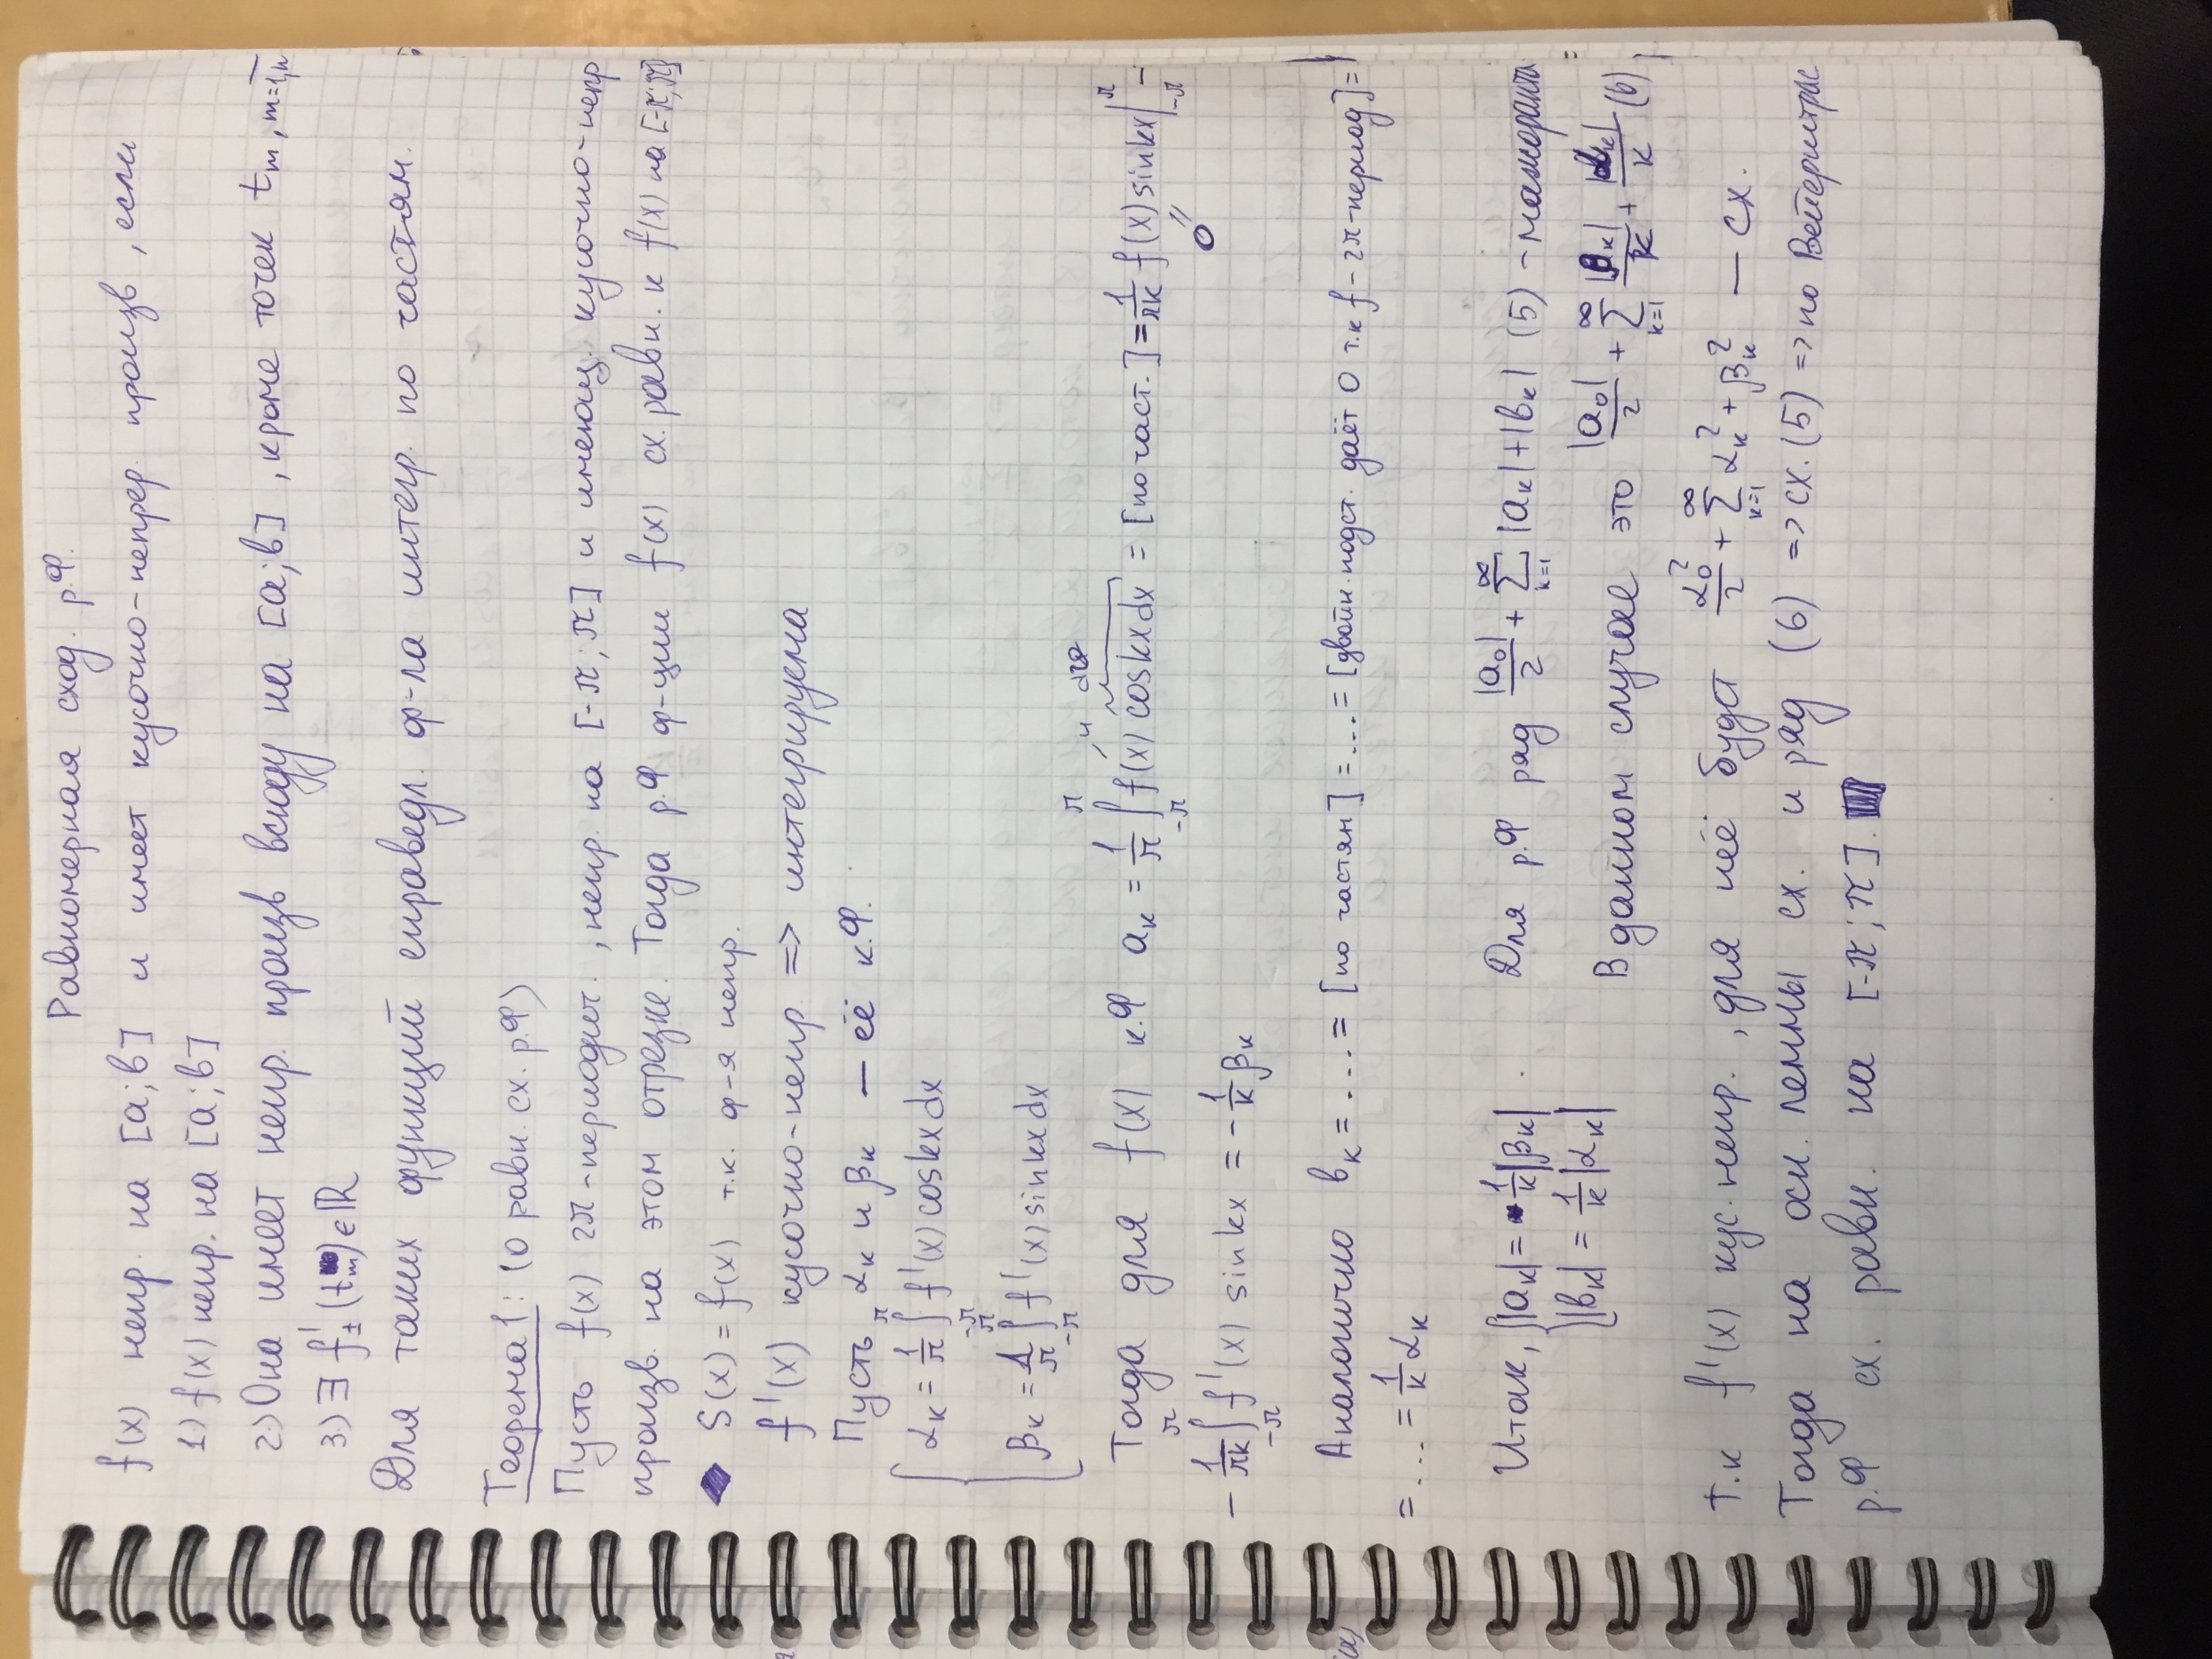 Равномерная сход. р.Ф.
f(x) непр. на [a;b] и имеет кусочно-непрер. произв, если
1.) f(x) непр. на [a;b]
2.) Она имеет непр. произв всюду на [a;b], кроме точек tₘ, m=1,n
3.) ∃ f'±(tₘ) ∈ ℝ
Для таких функций справедл. ф-ла интегр. по частям.
Теорема 1: (О равн. сх. р.Ф)
Пусть f(x) 2π-периодич., непр. на [-π;π] и имеющ. кусочно-непр
произв. на этом отрезке. Тогда р.Ф ф-ции f(x) сх. равн. к f(x) на [-π;π]
S(x) = f(x) т.к. ф-я непр.
f'(x) кусочно-непр => интегрируема
Пусть αₖ и βₖ — её к.Ф.
αₖ = 1/π ∫_{-π}^{π} f'(x) coskx dx
βₖ = 1/π ∫_{-π}^{π} f'(x) sinkx dx
Тогда для f(x) к.Ф aₖ = 1/π ∫_{-π}^{π} f(x) coskx dx = [по част.] = 1/πk f(x) sinkx |_{-π}^{π} -
- 1/πk ∫_{-π}^{π} f'(x) sinkx = - 1/k βₖ
Аналогично bₖ = .... = [по частям] = ... = [двойн. подст. даёт 0 т.к f - 2π-период] =
= ... = 1/k αₖ
Итак, { |aₖ| = 1/k |βₖ| . Для р.Ф ряд |a₀|/2 + ∑_{k=1}^{∞} |aₖ| + |bₖ| (5) - мажоранта
|bₖ| = 1/k |αₖ| В данном случае это |a₀|/2 + ∑_{k=1}^{∞} |βₖ|/k + |αₖ|/k (6)
Т.к f'(x) кус. непр., для неё будт α₀²/2 + ∑_{k=1}^{∞} αₖ² + βₖ² — сх.
Тогда на осн. леммы сх. и ряд (6) => сх. (5) => по Вейерштрас
р.Ф сх. равн. на [-π;π].